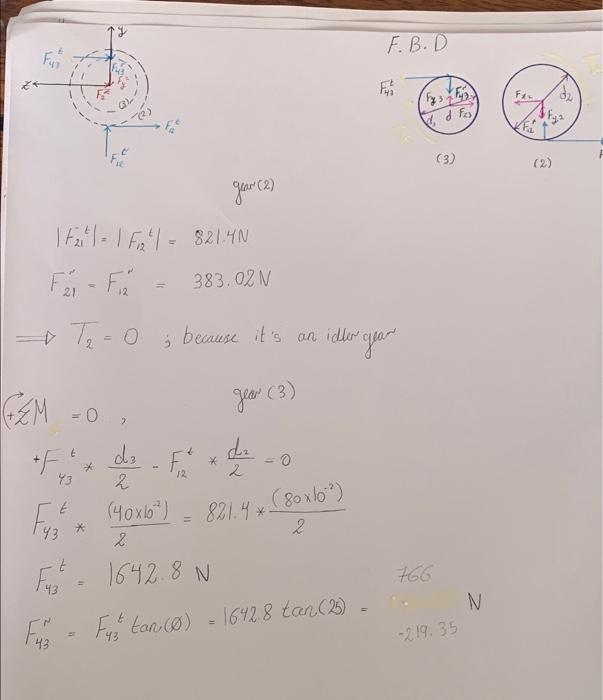 F. B. D
y
F43^t
F43^r
Fy
z
Fz
(3)
(2)
F12^t
F12^r
F43^t
Fy3
F43^r
d3
d
Fz3
(3)
Fz2
d2
Fy2
(2)
gear (2)
|F21^t| = |F12^t| = 821.4N
F21^r = F12^r = 383.02N
⇒ T2 = 0 ; because it's an idler gear
gear (3)
+ΣM = 0 ,
+F43^t * d3/2 - F12^t * d2/2 = 0
F43^t * (40x10^-2)/2 = 821.4 * (80x10^-2)/2
F43^t = 1642.8 N
F43^r = F43^t tan(Ø) = 1642.8 tan(25) = 766 N
-219.35